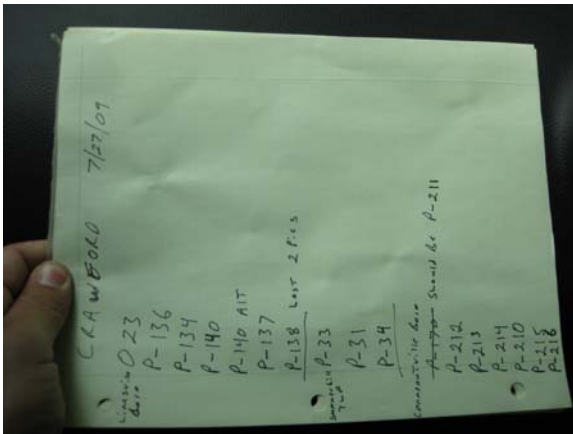 CRAWFORD 7/27/09
Linesville Boro 023
P-136
P-134
P-140
P-140 AIT
P-137
P-138 Last 2 Pics
Twp P-33
P-31
P-34
Conneautville Boro
P-170 Should Be P-211
P-212
P-213
P-214
P-210
P-215
P-216